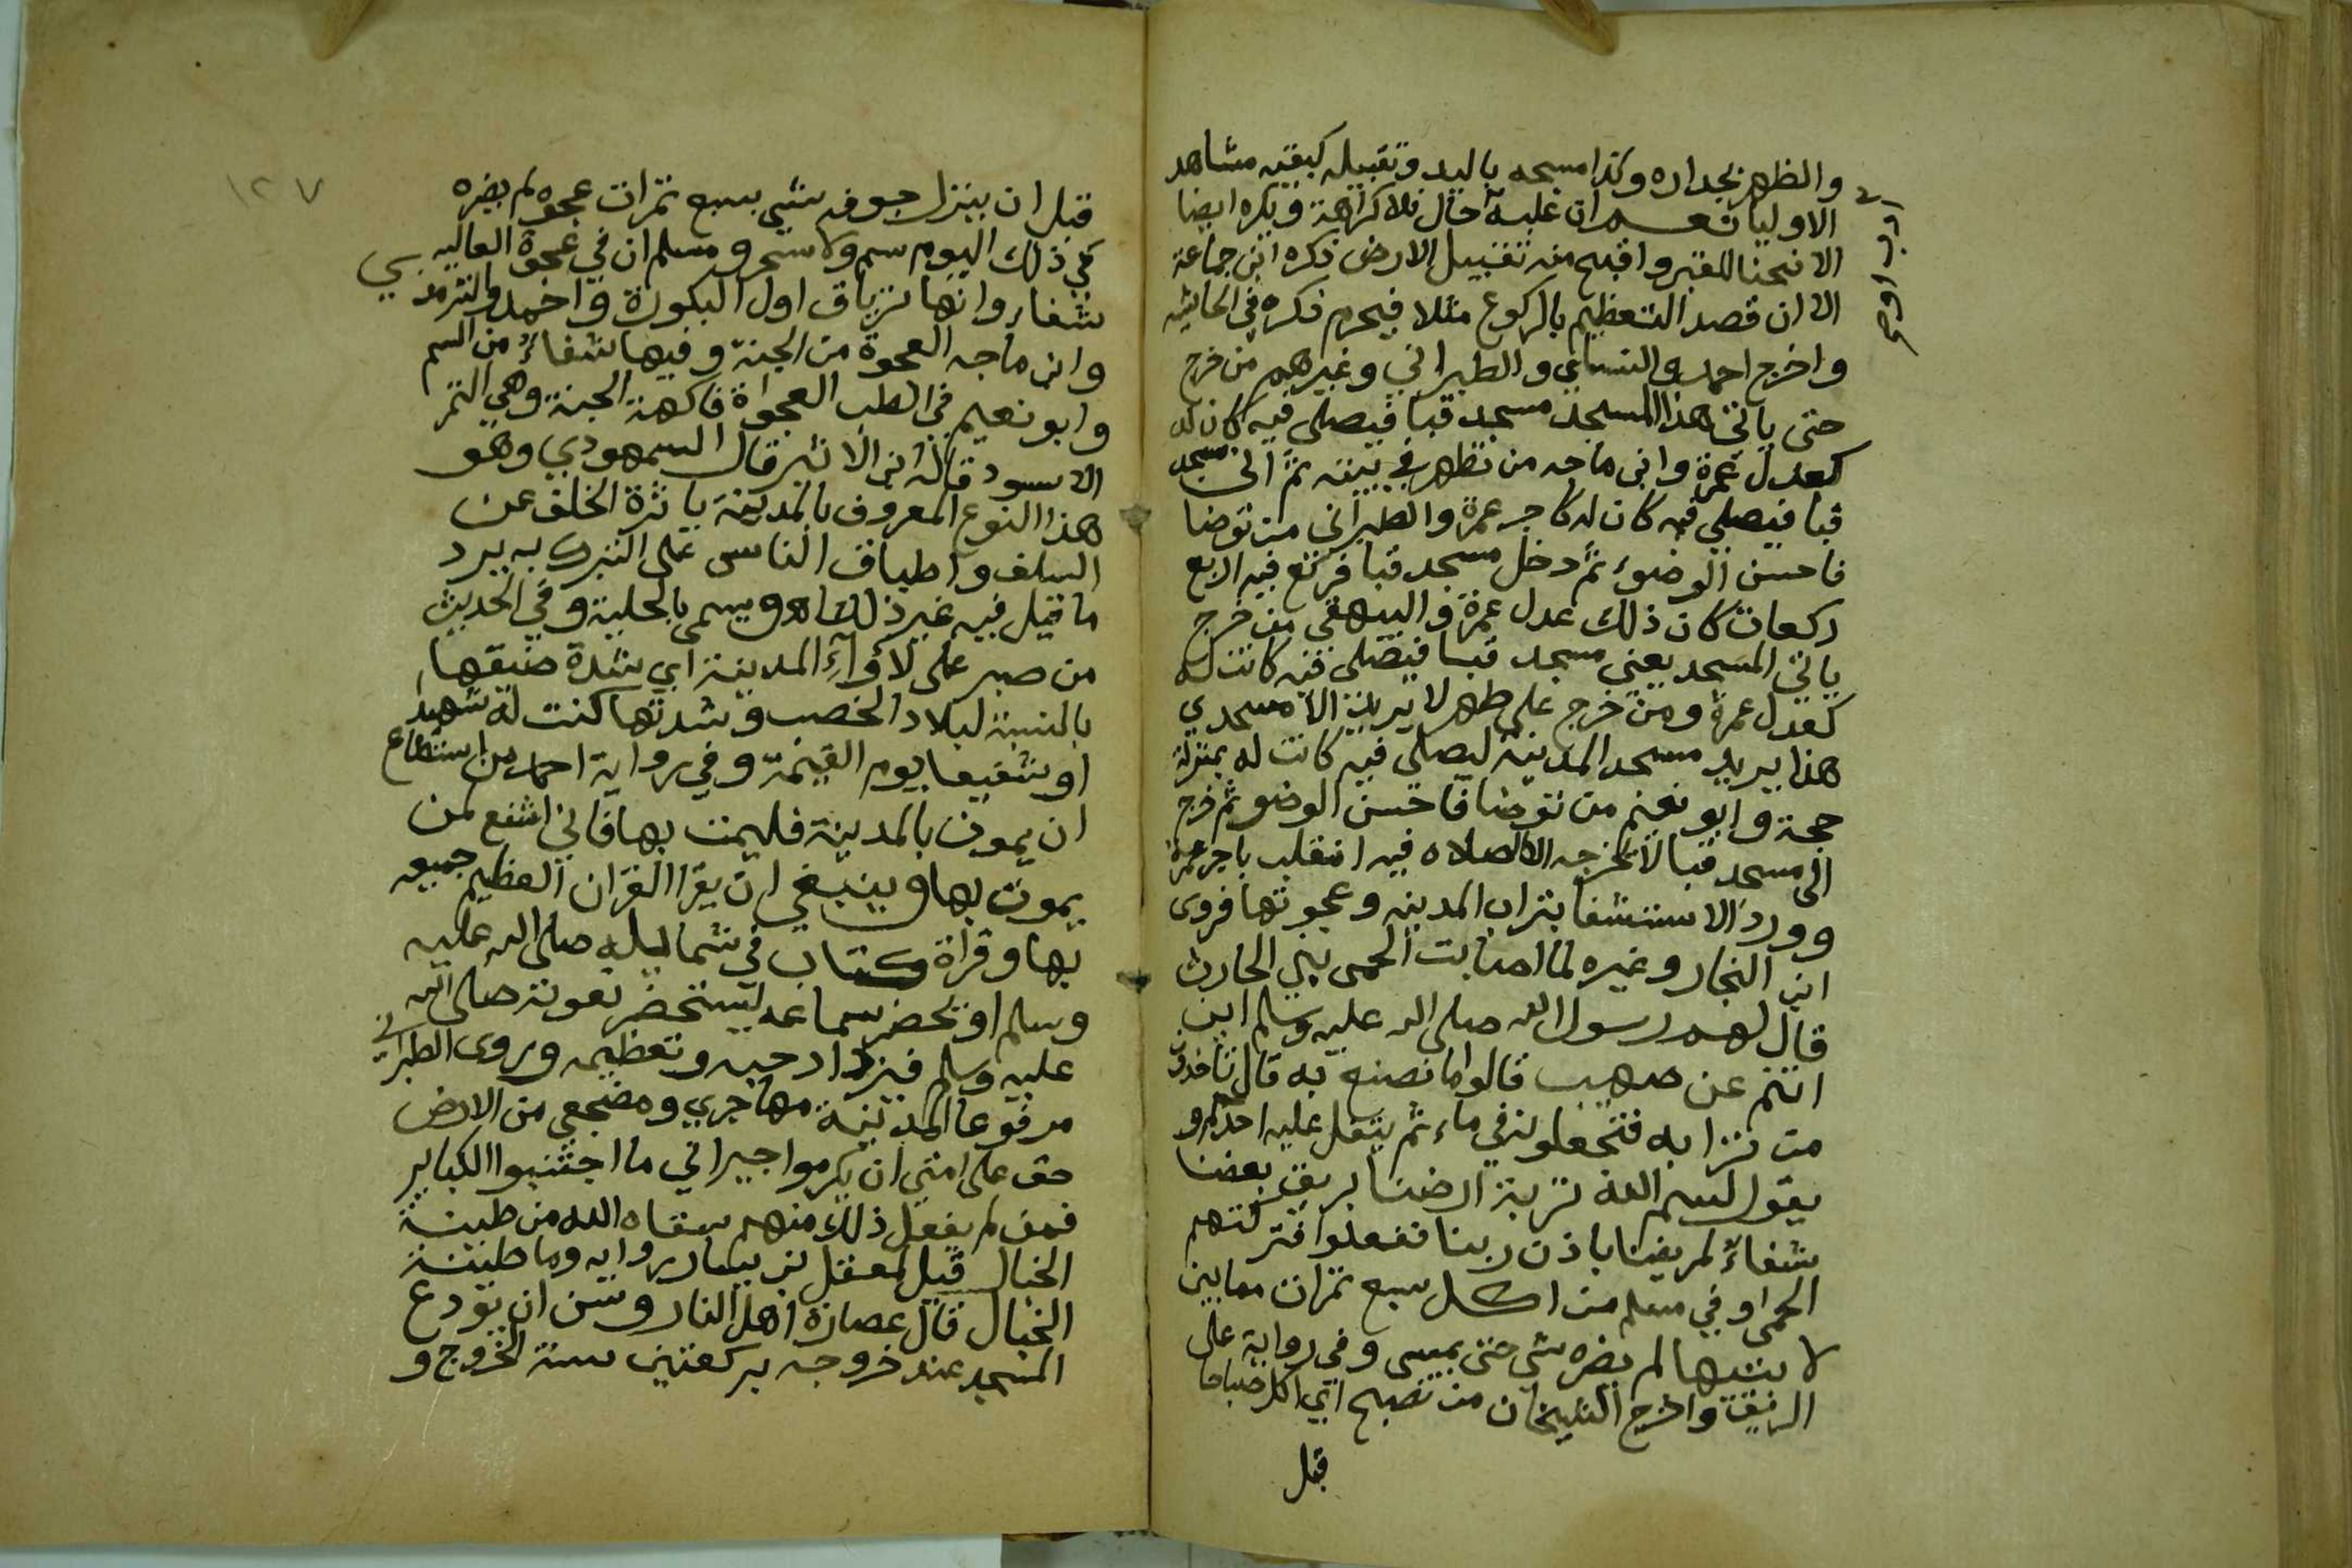 والظهر بجداره وكذا مسحه باليد وتقبيله كبقية مشاهد
الاوليا نعم ان غلبه حال فلا كراهة ويكره ايضا
الانحنا للقبر واقبح منه تقبيل الارض ذكره ابن جماعة
الا ان قصد التعظيم بالركوع مثلا فيحرم ذكره في الحاشيه
واخرج احمد والنساي والطبراني وغيرهم من خرج
حتى ياتي هذا المسجد مسجد قبا فيصلي فيه كان له
كعدل عمرة وابن ماجه من تطهر في بيته ثم اتى مسجد
قبا فيصلي فيه كان له كاجر عمرة والطبراني من توضا
فاحسن الوضوء ثم دخل مسجد قبا فركع فيه اربع
ركعات كان ذلك عدل عمرة والبيهقي من خرج
ياتي المسجد يعني مسجد قبا فيصلي فيه كانت له
كعدل عمرة ومن خرج على طهر لا يريد الا مسجدي
هذا يريد مسجد المدينة ليصلي فيه كانت له بمنزلة
حجة وابو نعيم من توضا فاحسن الوضو ثم خرج
الى مسجد قبا لا تخرجه الا الصلاه فيه انقلب باجر عمرة
وورد الاستشفا بتراب المدينه وعجوتها فروى
ابن النجار وغيره لما اصابت الحمى بني الحارث
قال لهم رسول الله صلى الله عليه وسلم اين
انتم عن صهيب قالوا ما نصنع به قال تاخذون
من ترابه فتجعلونه في ماء ثم يتفل عليه احدكم و
يقول بسم الله تربة ارضنا بريق بعضنا
شفاءٌ لمريضنا باذن ربنا ففعلوا فتركتهم
الحمى وفي مسلم من اكل سبع تمرات مما بين
لا بتيها لم يضره شي حتى يمسي وفي رواية على
الريق واخرج الشيخان من تصبح اي اكل صباحا
قبل
١٢٧
قبل ان ينزل جوفه شي بسبع تمرات عجوه لم يضره
في ذلك اليوم سم ولا سحر ومسلم ان في عجوة العاليه
شفاء وانها ترياق اول البكورة واحمد والترمذي
وابن ماجه العجوة من الجنة وفيها شفاءٌ من السم
وابو نعيم في الطب العجواة فاكهة الجنة وهي التمر
الاسود قاله ابن الاثير قال السمهودي وهو
هذا النوع المعروف بالمدينة ياثرة الخلف عن
السلف واطباق الناس على التبرك به يرد
ما قيل فيه غير ذلك اهـ ويسمى بالحلية وفي الحديث
من صبر على لأوآءِ المدينة اي شدة ضيقها
بالنسبة لبلاد الخصب وشدتها كنت له شهيدا
او شفيعا يوم القيٰمة وفي رواية احمد من استطاع
ان يموت بالمدينة فليمت بها فاني اشفع لمن
يموت بها وينبغي ان يقرا القران العظيم جميعه
بها وقراة كتاب في شمايله صلى الله عليه
وسلم او يحضر سماعه ليستحضر نعوته صلى الله
عليه وسلم فيزداد حبه وتعظيمه وروى الطبراني
مرفوعا المدينة مهاجري ومضجعي من الارض
حق على امتي ان يكرموا جيراني ما اجتنبوا الكباير
فمن لم يفعل ذلك منهم سقاه الله من طينة
الخبال قيل لمعقل بن يسار روايه وما طينة
الخبال قال عصارة اهل النار وسن ان يودع
المسجد عند خروجه بركعتين سنة الخروج و